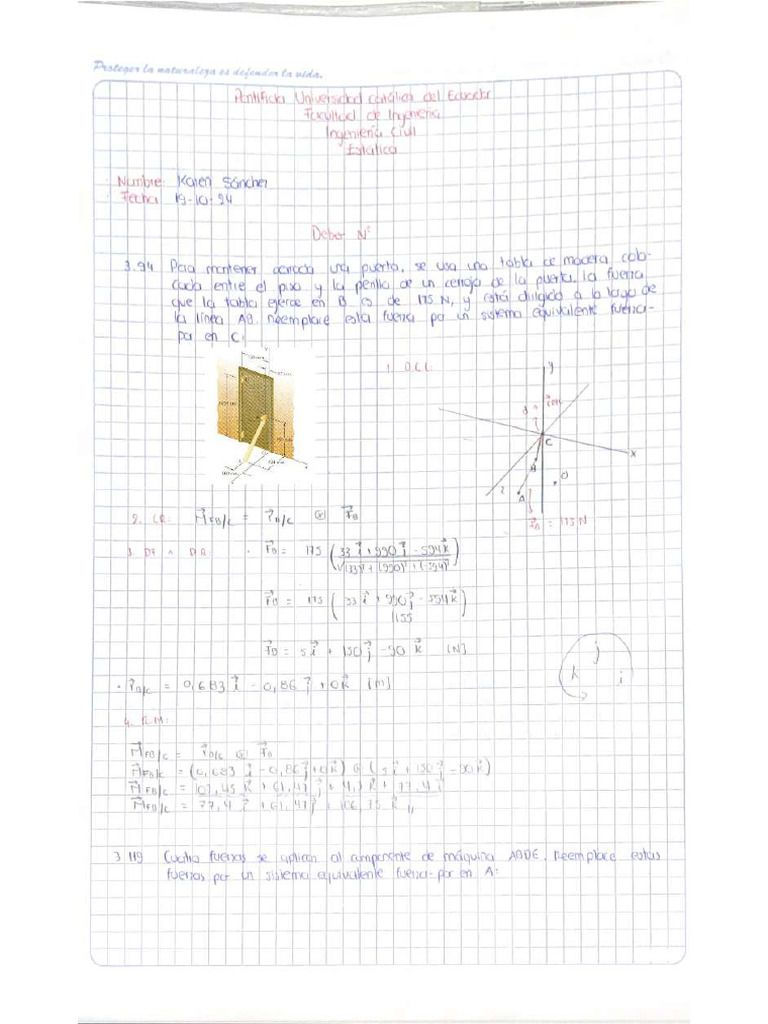 Proteger la naturaleza es defender la vida.
Pontificia Universidad Católica del Ecuador
Facultad de Ingeniería
Ingeniería Civil
Estática
Nombre: Karen Sánchez
Fecha: 19-10-24
Deber N°
3.94 Para mantener cerrada una puerta, se usa una tabla de madera colo-
cada entre el piso y la perilla de un cerrojo de la puerta. La fuerza
que la tabla ejerce en B es de 175 N, y está dirigida a lo largo de
la línea AB. Reemplace esta fuerza por un sistema equivalente fuerza-
par en C:
1. D.C.L:
y
C
x
B
D
A
z
F⃗B = 175 N
2. L.R: M⃗FB/C = r⃗B/C ⊗ F⃗B
3. DF ∧ DR: • F⃗B = 175 (33 i⃗ + 990 j⃗ - 594 k⃗ / √(33)² + (990)² + (-594)²)
F⃗B = 175 (33 i⃗ + 990 j⃗ - 594 k⃗ / 1155)
F⃗B = 5 i⃗ + 150 j⃗ - 90 k⃗ [N]
j
k i
• r⃗B/C = 0,683 i⃗ - 0,86 j⃗ + 0 k⃗ [m]
4. R.M:
M⃗FB/C = r⃗B/C ⊗ F⃗B
M⃗FB/C = (0,683 i⃗ - 0,86 j⃗ + 0 k⃗) ⊗ (5 i⃗ + 150 j⃗ - 90 k⃗)
M⃗FB/C = 102,45 k⃗ + 61,47 j⃗ + 4,3 k⃗ + 77,4 i⃗
M⃗FB/C = 77,4 i⃗ + 61,47 j⃗ + 106,75 k⃗ //
3.119 Cuatro fuerzas se aplican al componente de máquina ABDE. Reemplace estas
fuerzas por un sistema equivalente fuerza-par en A: